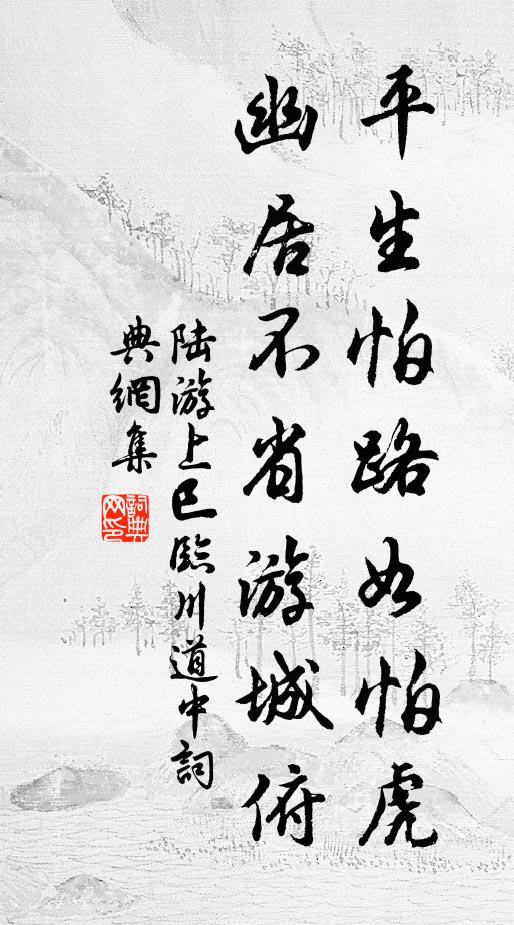 平生怕路如怕虎
幽居不省游城俯
陆游上巳臨川道中詞
典網集
詞典
网印